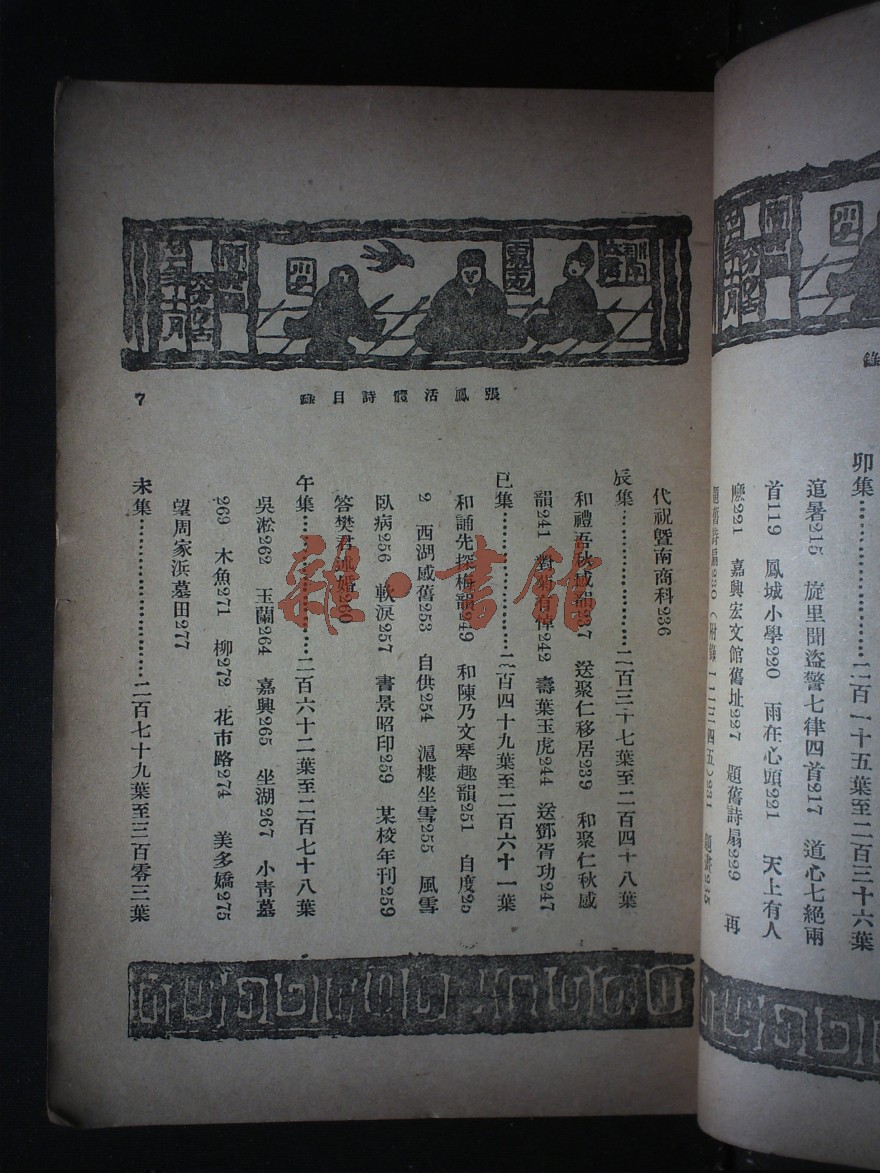 錄
卯集……………二百一十五葉至二百三十六葉
逭暑215 旋里聞盜警七律四首217 道心七絕兩
首119 鳳城小學220 雨在心頭221 天上有人
221 嘉興宏文館舊址227 題舊詩扇229 再
題舊詩扇230(附錄一二三四五)231
張鳳活體詩目錄
7
代祝暨南商科236
辰集……………二百三十七葉至二百四十八葉
和禮吾秋感韻237 送聚仁移居239 和聚仁秋感
韻241 對菊有悼242 壽葉玉虎244 送鄧胥功247
巳集……………二百四十九葉至二百六十一葉
和誦先探梅韻249 和陳乃文琴趣韻251 自度25
2 西湖感舊253 自供254 滬樓坐雪255 風雪
臥病256 軟淚257 書景昭印259 某校年刊259
答樊君述婚260
午集……………二百六十二葉至二百七十八葉
吳淞262 玉蘭264 嘉興265 坐湖267 小青墓
269 木魚271 柳272 花市路274 美多嬌275
望周家浜墓田277
未集……………二百七十九葉至三百零三葉
雜·書館